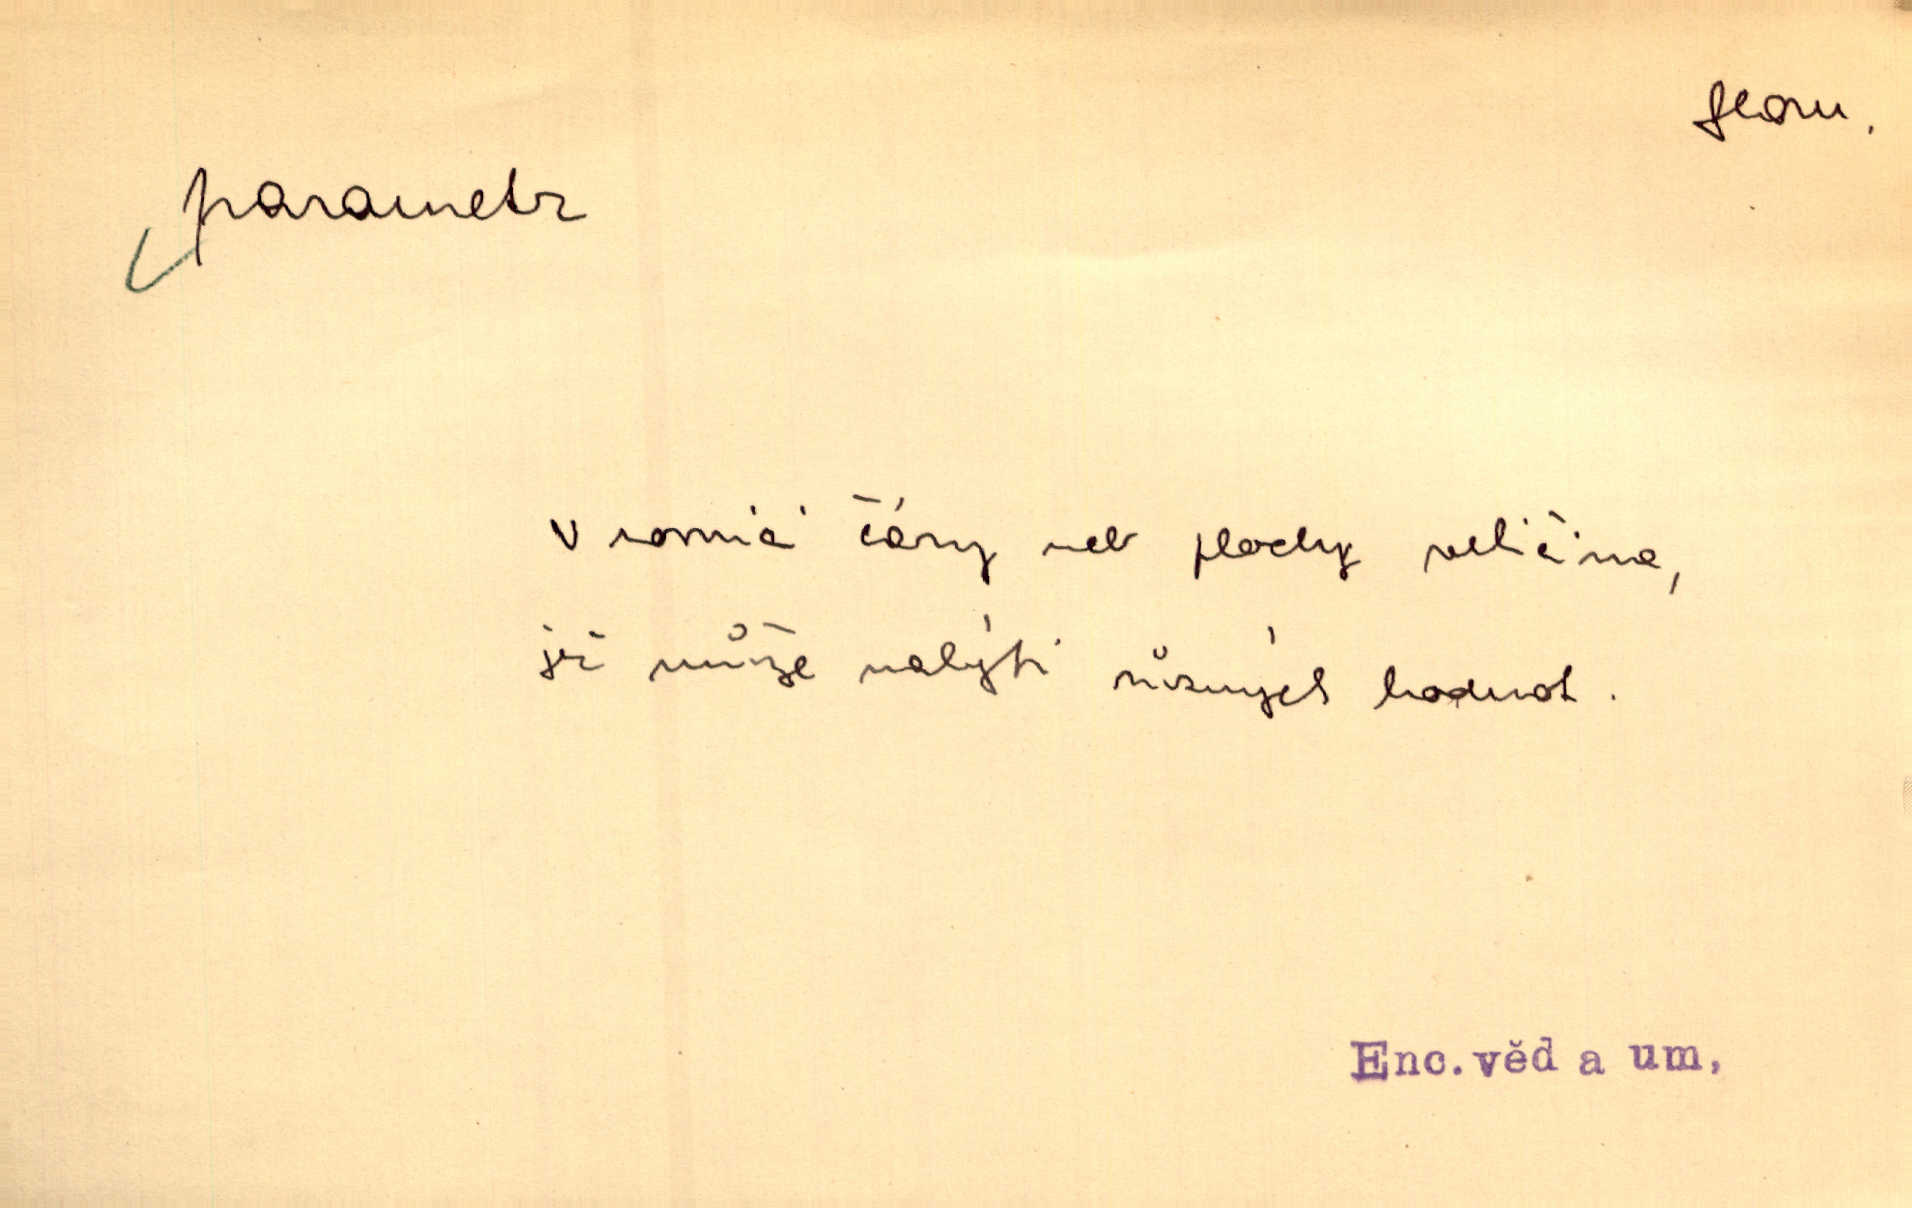 geom.
parametr
v rovnici čáry neb plochy veličina,
jež může nabýti různých hodnot.
Enc. věd a um.